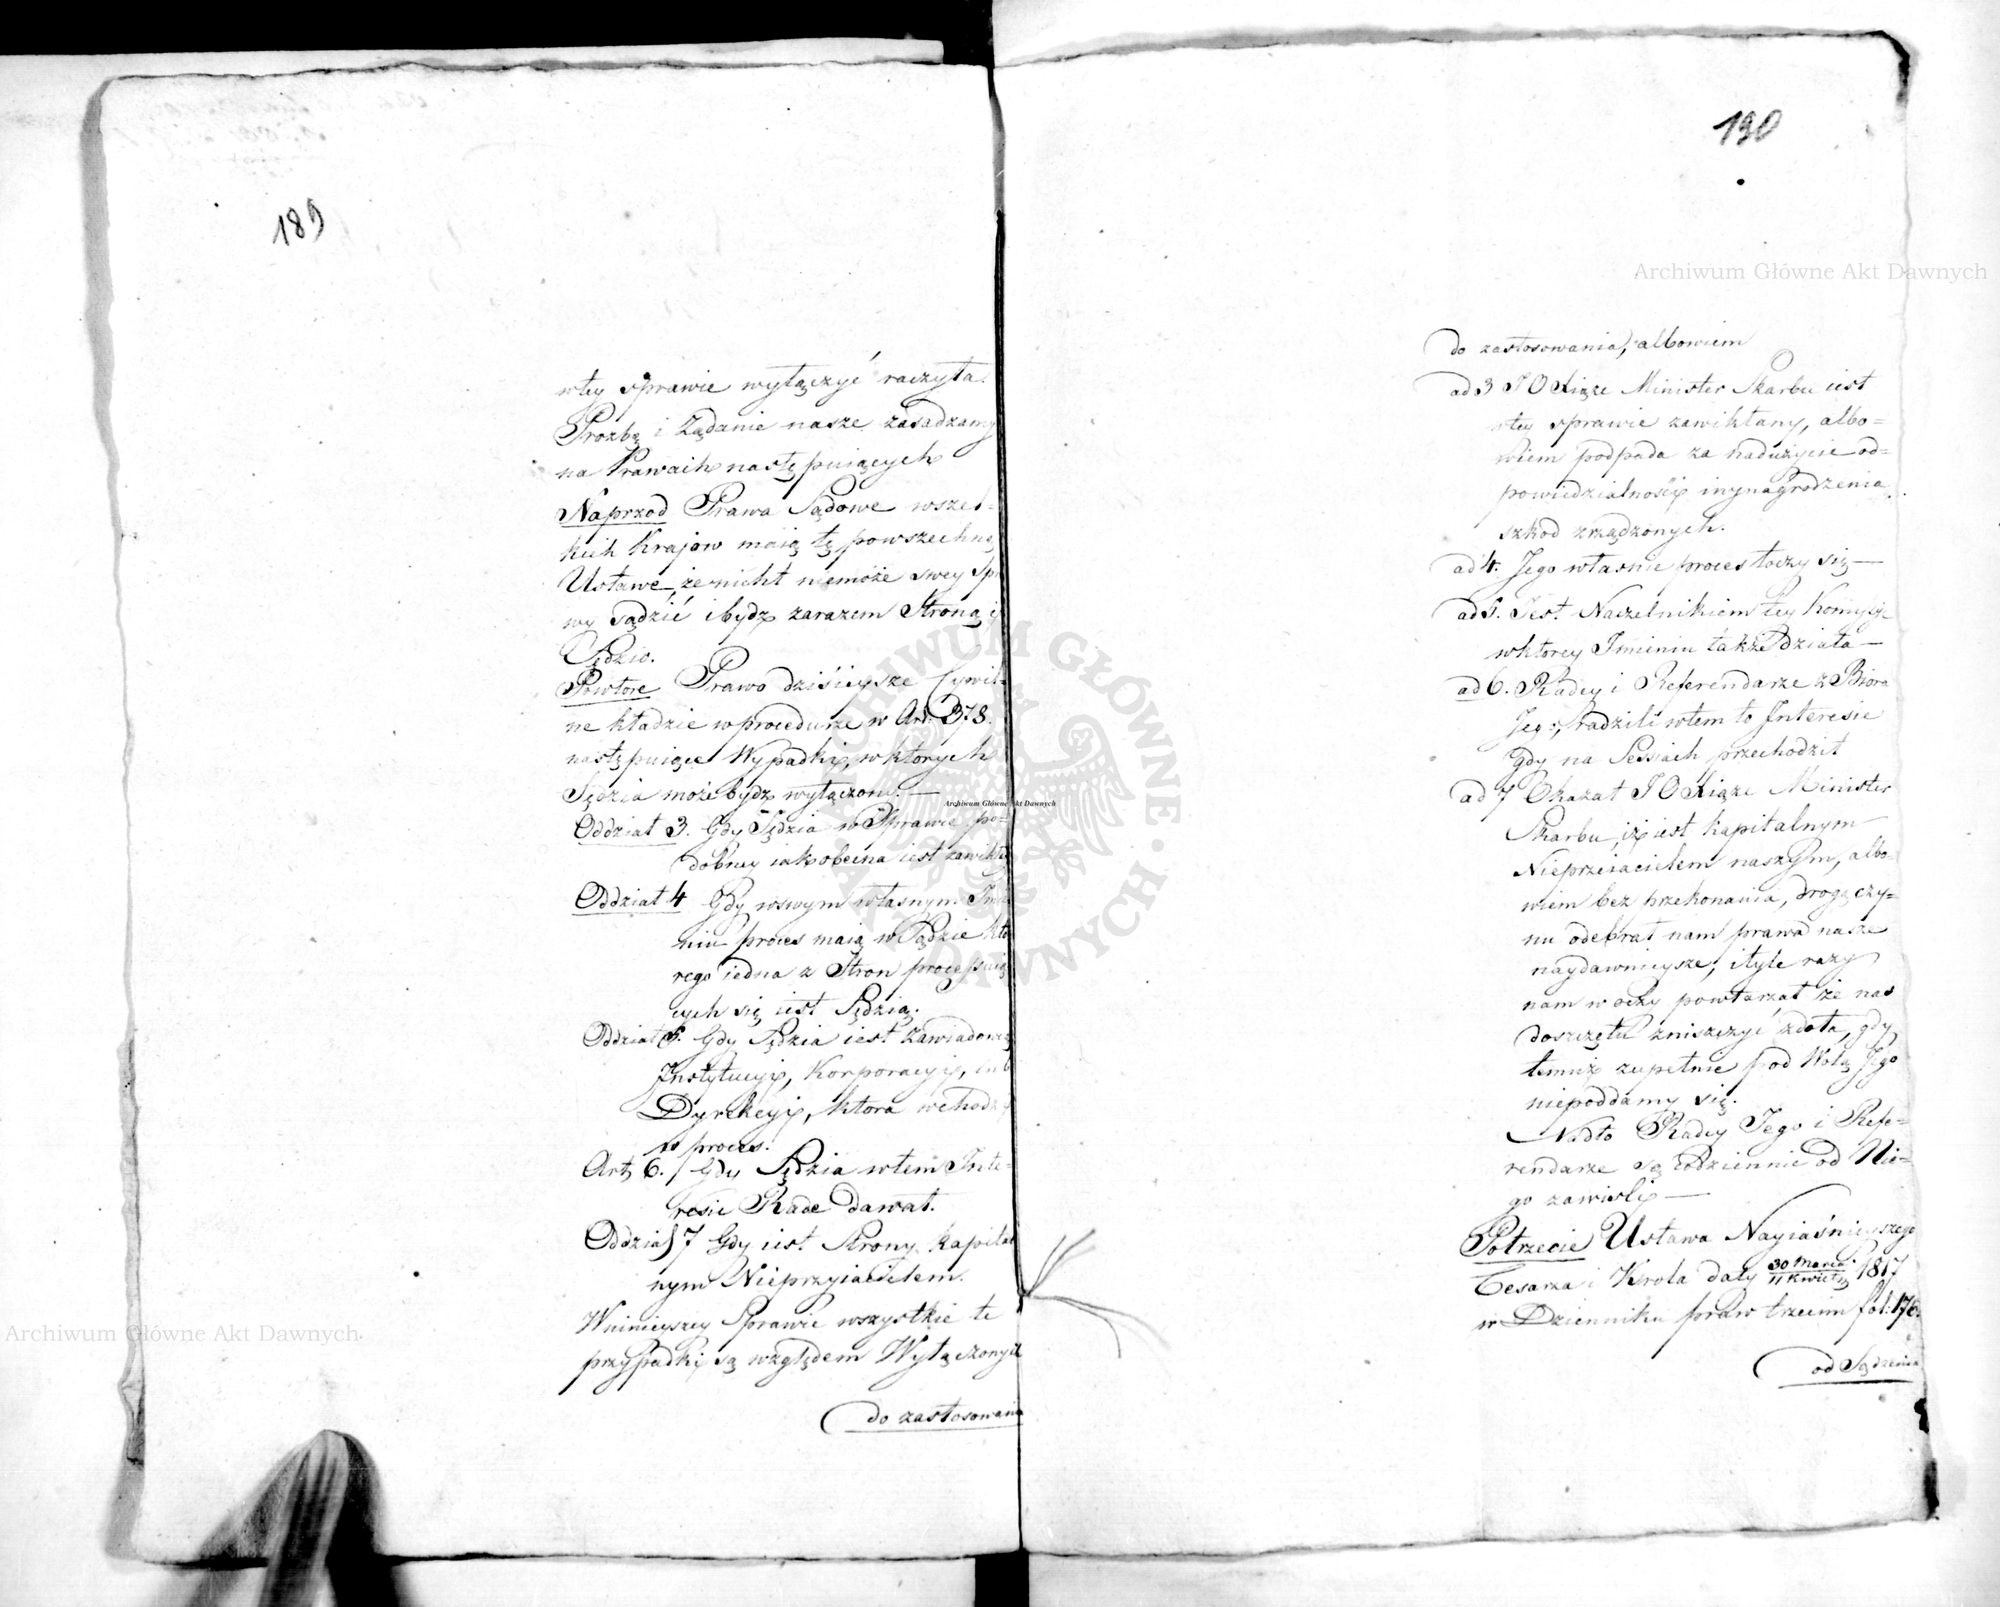 189
wtey sprawie wyłączyć raczyła.
Prozbę i Żądanie nasze zasadzamy
na Prawach następuiących
Naprzod Prawa Sądowe wszel-
kich Krajow maią tę powszechną
Ustawę, że nicht niemoże swey Spr
wy sądzić i bydz zarazem Stroną i
Sędzią.
Powtore Prawo dzisieysze Cywil-
ne kładzie w procedurze w Art: 378.
następuiące Wypadki, w ktorych
Sędzia może bydz wyłączony. —
Oddział 3. Gdy Sędzia w Sprawie po-
dobney iak obecna iest zawikł
Oddział 4 Gdy wswym własnym Imie
niu proces maią w Sądzie kto
rego iedna z Stron processuią
cych się iest Sędzią.
Oddział 5. Gdy Sędzia iest zawiadowcą
Instytucyi, Korporacyi, lub
Dyrekcyi, ktora wchodzi
w proces.
Art 6. Gdy Sędzia wtem Inte-
resie Radę dawał.
Oddział 7 Gdy iest Strony kapital
nym Nieprzyiacielem.
Wninieyszey Sprawie wszystkie te
przypadki są względem Wyłączonych
do zastosowania
190
do zastosowania, albowiem
ad 3 JO Xiąże Minister Skarbu iest
wtey sprawie zawikłany, albo-
wiem podpada za nadużycie od-
powiedzialności i wynagrodzenia
szkod zrządzonych.
ad 4. Jego własnie proces toczy się —
ad 5. Jest Naczelnikiem tey Komisyi
wktorey Imieniu także działa —
ad 6. Radcy i Referendarze z Biora
Jego, radzili wtem to Interesie
gdy na Sessiach przechodził
ad 7 Okazał JO Xiąże Minister
Skarbu, iż iest kapitalnym
Nieprzeiacielem naszym, albo-
wiem bez przekonania, drogą czy-
nu odebrał nam prawa nasze
naydawnieysze, i tyle razy
nam w oczy powtarzał że nas
doszczętu zniszczyć zdoła, gdy
temuż zupełnie pod Wolę Jego
niepoddamy się.
Nadto Radcy Jego i Refe-
rendarze są codziennie od Nie-
go zawisli —
Potrzecie Ustawa Nayiaśnieyszego
Cesarza i Krola daty 30 Marca 1817
11 Kwiet
w Dzienniku praw trzecim fol: 176.
od Sądzenia
Archiwum Główne Akt Dawnych
Archiwum Główne Akt Dawnych
Archiwum Główne Akt Dawnych
ARCHIWUM GŁÓWNE AKT DAWNYCH